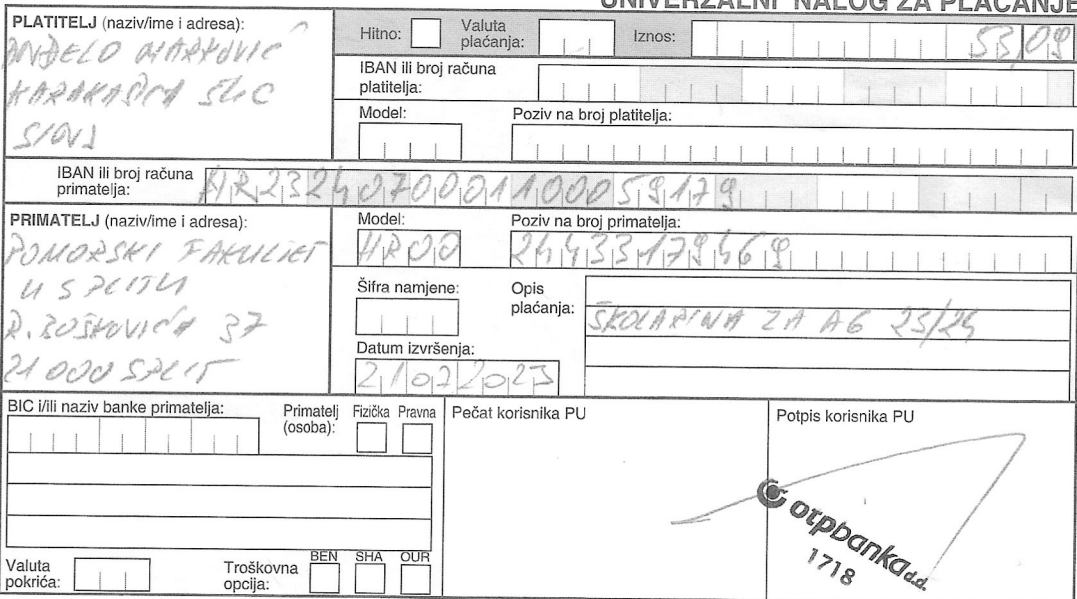 UNIVERZALNI NALOG ZA PLAĆANJE
PLATITELJ (naziv/ime i adresa):
ANĐELO MARKOVIĆ
KARAKAŠICA
SINJ
Hitno:
Valuta plaćanja:
Iznos: 53,09
IBAN ili broj računa platitelja:
Model:
Poziv na broj platitelja:
IBAN ili broj računa primatelja: HR2324070001100059179
PRIMATELJ (naziv/ime i adresa):
POMORSKI FAKULTET
U SPLITU
R. BOŠKOVIĆA 37
21000 SPLIT
Model: HR00
Poziv na broj primatelja: 24433179469
Šifra namjene:
Opis plaćanja:
ŠKOLARINA ZA AG 23/24
Datum izvršenja:
21072023
BIC i/ili naziv banke primatelja:
Primatelj (osoba):
Fizička Pravna
Pečat korisnika PU
Potpis korisnika PU
otpbanka d.d.
1718
Valuta pokrića:
Troškovna opcija:
BEN SHA OUR